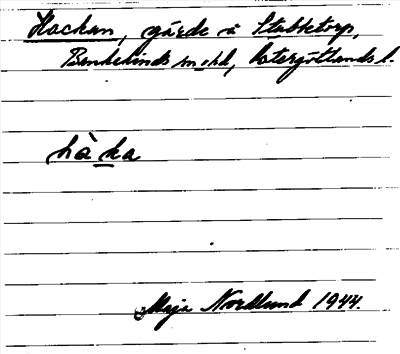 Hackan, gärde å Stubbetorp,
sn o hd, Östergötlands l.
hàka
Maja Nordlund 1944.